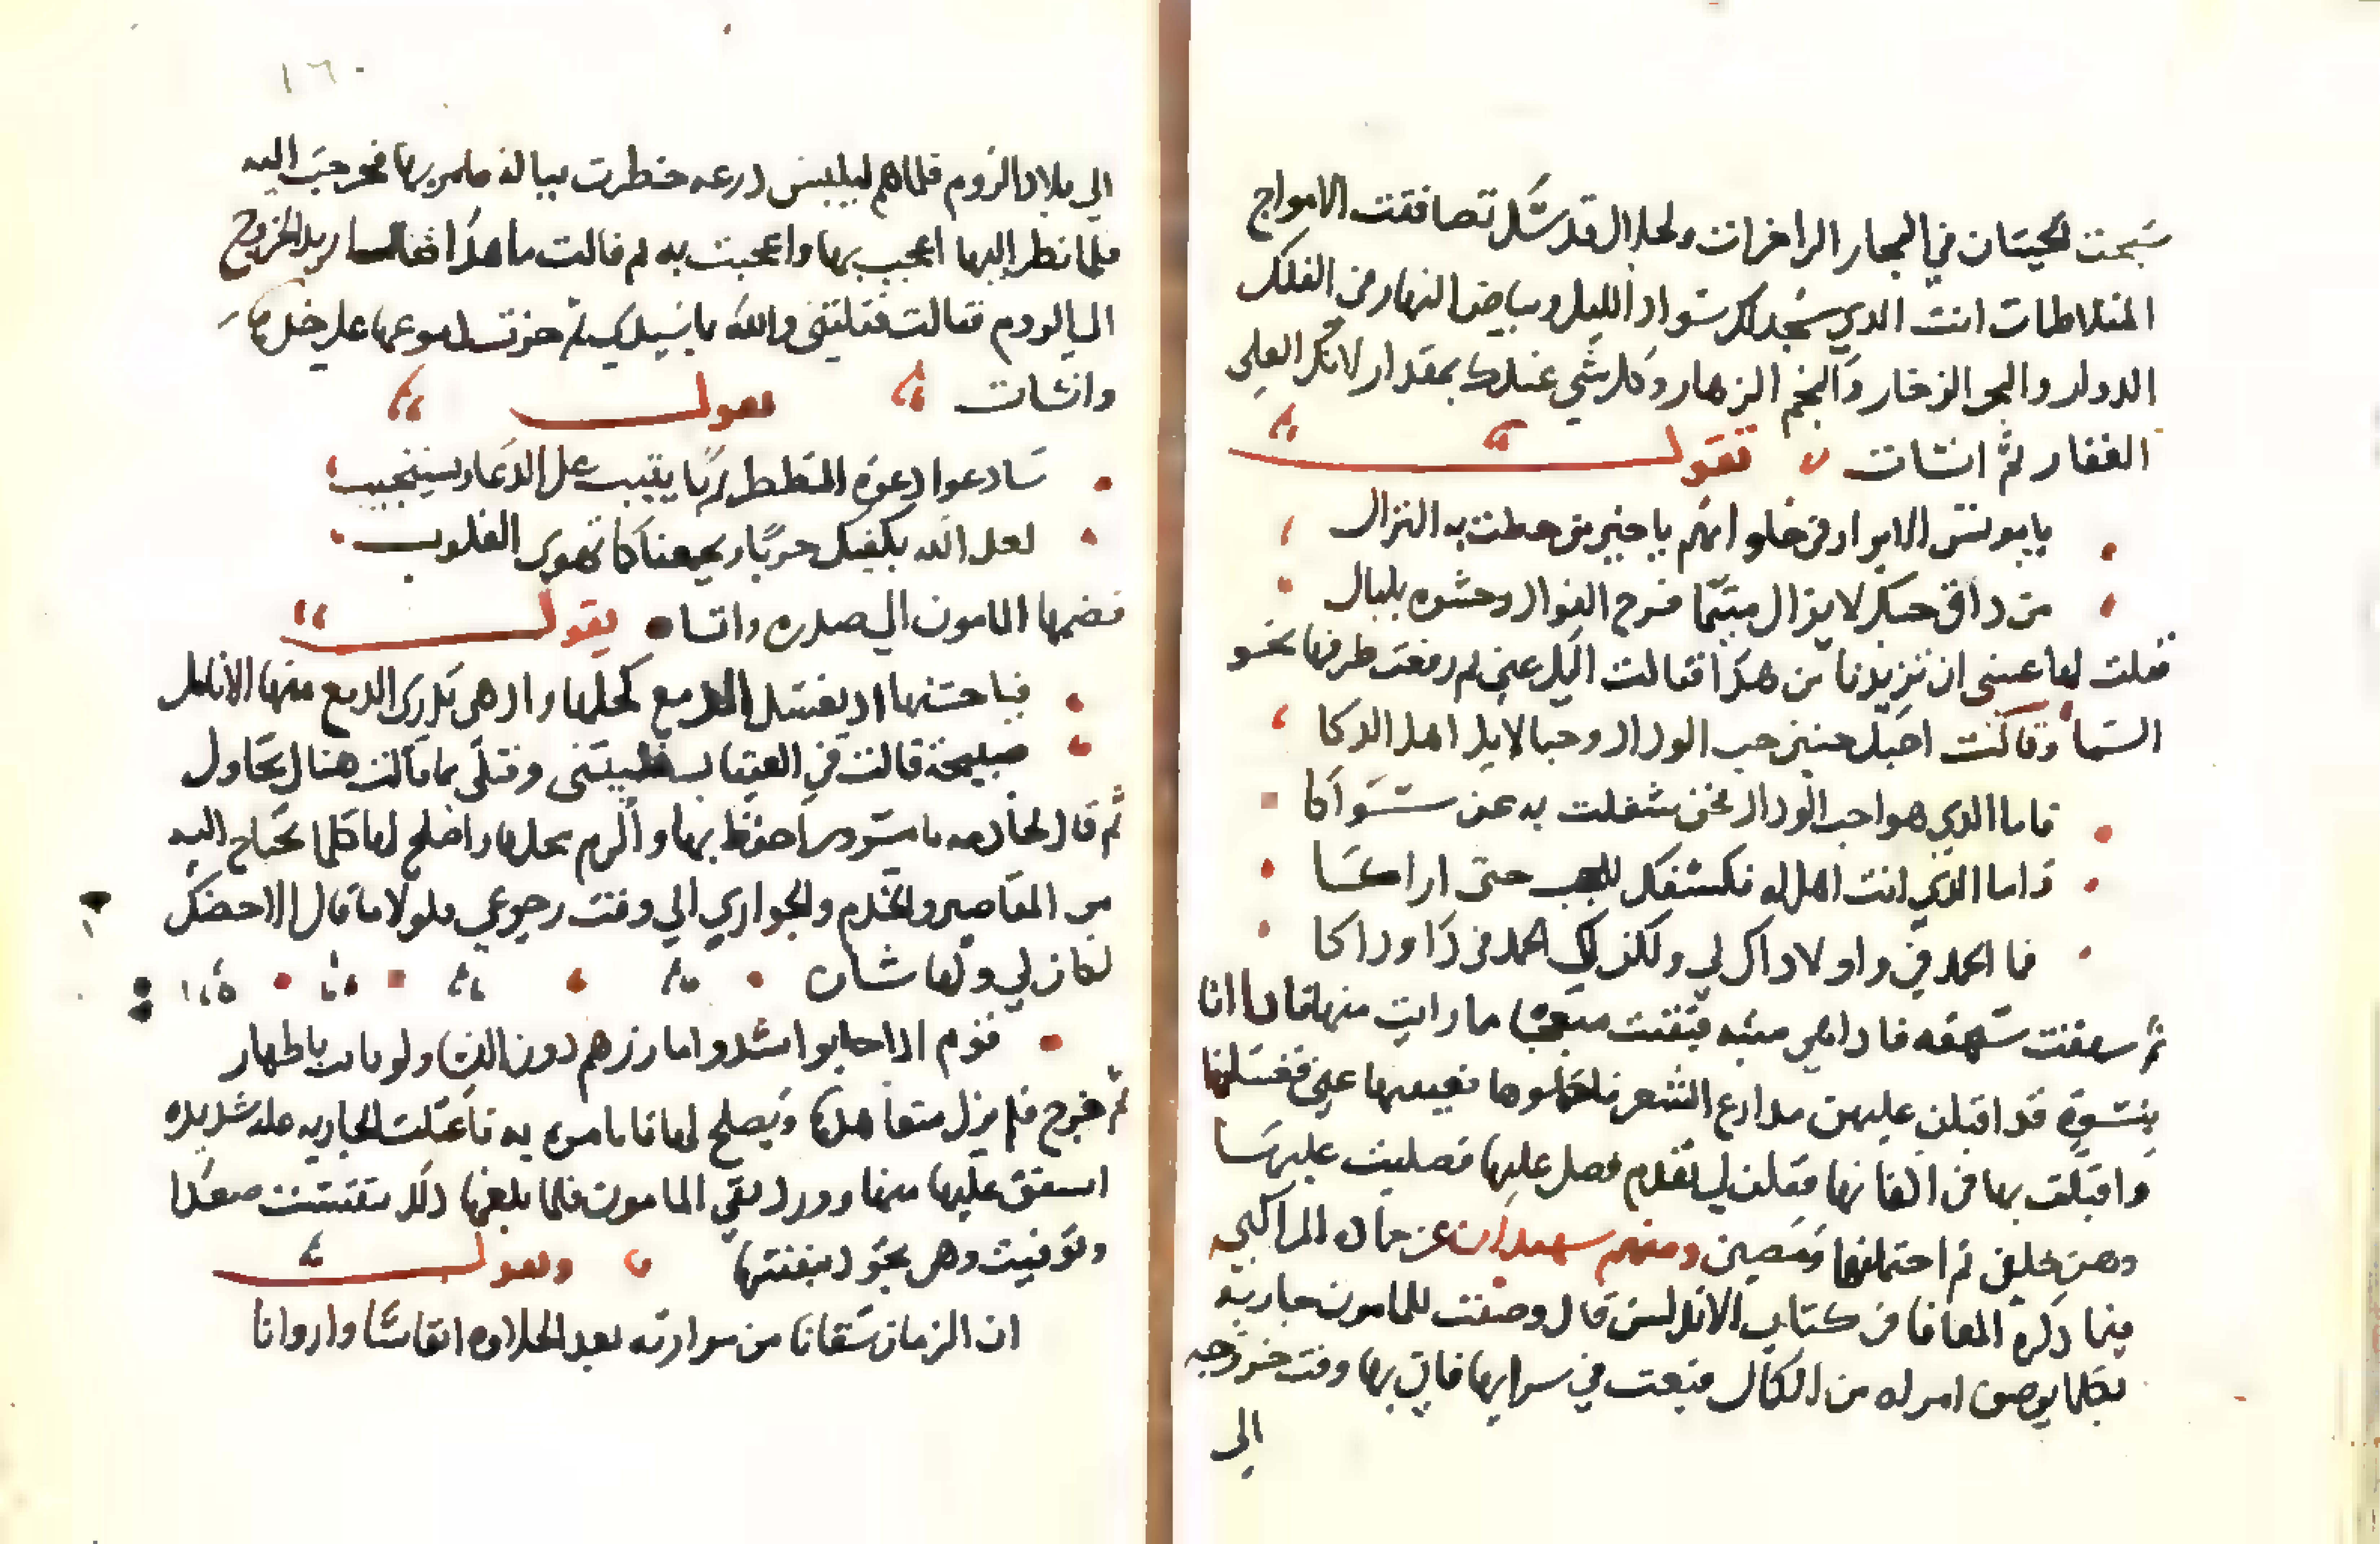 سبحت الحيتان في البحار الزاخرات ولجلال قدسك تصافقت الامواج
المتلاطمات انت الذي سجد لك سواد الليل وبياض النهار والفلك
الدوار والبحر الزخار والنجم الزهار وكل شي عندك بمقدار لانك العلي
الغفار ثم انشات تقول
يا مونس الابرار في خلواتهم يا خير من حطت به النزال
من ذاق حبك لا يزال متيما فرح الفواد وحشوه بلبال
فقلت لها عسى ان تزيدنا من هذا فقالت اليك عني ثم رفعت طرفها نحو
السما وقالت احبك حبين حب الوداد وحبا لانك اهل لذاكا
فاما الذي هو احب الوداد فحب شغلت به عن سواكا
واما الذي انت اهل له فكشفك للحجب حتى اراكا
فما الحمد في ذا ولا ذاك لي ولكن لك الحمد في ذا وذاكا
ثم شهقت شهقه فاذا هي ميته فبقيت متعجبا مما رايت منها فاذا انا
بنسوة قد اقبلن عليهن مدارع الشعر فاحتملوها فغيبنها عني فغسلنها
واقبلن بها في اكفانها فقلن لي تقدم فصل عليها فصليت عليها
وهن خلفي ثم احتملنها ومضين ومنهم شهيدان عن حال المراكبي
فيما ذكره المعافا في كتاب الانيس قال وصفت للمامون جارية
بكلما يوصف امراه من الكمال فبعث في شرايها فاتي بها وقت خروجه
الى
١٦٠
الي بلاد الروم فلما هم ليلبس درعه خطرت بباله فامر بها فخرجت اليه
فلما نظر اليها اعجب بها واعجبت به ثم قالت ما هذا فقال اريد الخروج
الى الروم فقالت قتلتني والله يا سيدي ثم حدرت دموعها على خدها
وانشات تقول
سادعوا دعوة المضطر ربا يثيب على الدعا ويستجيب
لعل الله يكفيك حربا ويجمعنا كما تهوى القلوب
فضمها المامون الي صدره وانشا يقول
فيا حسنها اذ يغسل الدمع كحلها واذ هي تذري الدمع منها الانامل
صبيحة قالت في العتاب قتلتني وقتلي بما قالت هناك تحاول
ثم قال لخادمه يا مسرور احتفظ بها واكرم محلها واصلح لها كلما تحتاج اليه
من المقاصير والخدم والجواري الي وقت رجوعي فلولا ما قال الاخطل
لكان لي ولها شان
قوم اذا حاربوا شدوا مازرهم دون النسا ولو باتت باطهار
ثم خرج فلم يزل يتعاهدها ويصلح لها ما امر به فاعتلت الجارية علة شديدة
اشفق عليها منها وورد نعي المامون فلما بلغها ذلك تنفست صعدا
وتوفيت وهي تجود بنفسها وتقول
ان الزمان سقانا من مرارته بعد الحلاوه انفاسا واروانا